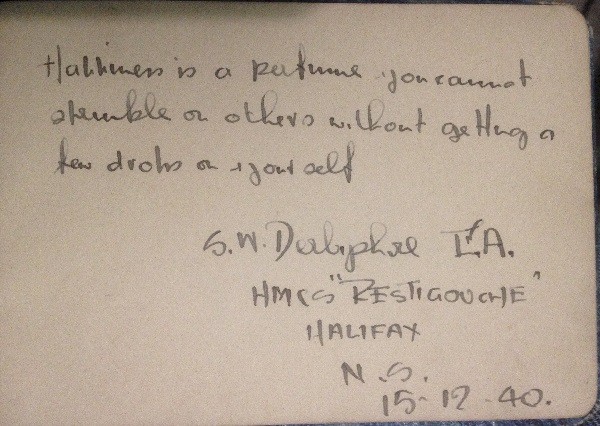 Happiness is a perfume you cannot
sprinkle on others without getting a
few drops on yourself
S.W. E.A.
HMCS "RESTIGOUCHE"
HALIFAX
N.S.
15-12-40.